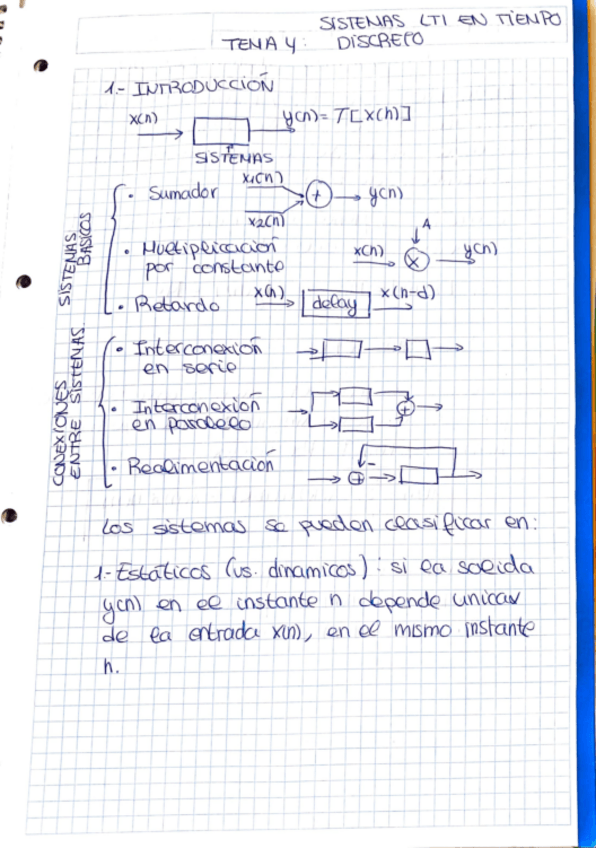 SISTEMAS LTI EN TIEMPO
TEMA 4: DISCRETO
1.- INTRODUCCIÓN
x(n) y(n) = T[x(n)]
SISTEMAS
SISTEMAS BASICOS
· Sumador x1(n) + y(n)
x2(n)
A
· Multiplicación x(n) x y(n)
por constante
· Retardo x(n) delay x(n-d)
CONEXIONES ENTRE SISTEMAS
· Interconexión
en serie
· Interconexión +
en paralelo
· Realimentación + -
Los sistemas se pueden clasificar en:
1.- Estáticos (vs. dinamicos): si la salida
y(n) en el instante n depende unicam
de la entrada x(n), en el mismo instante
n.